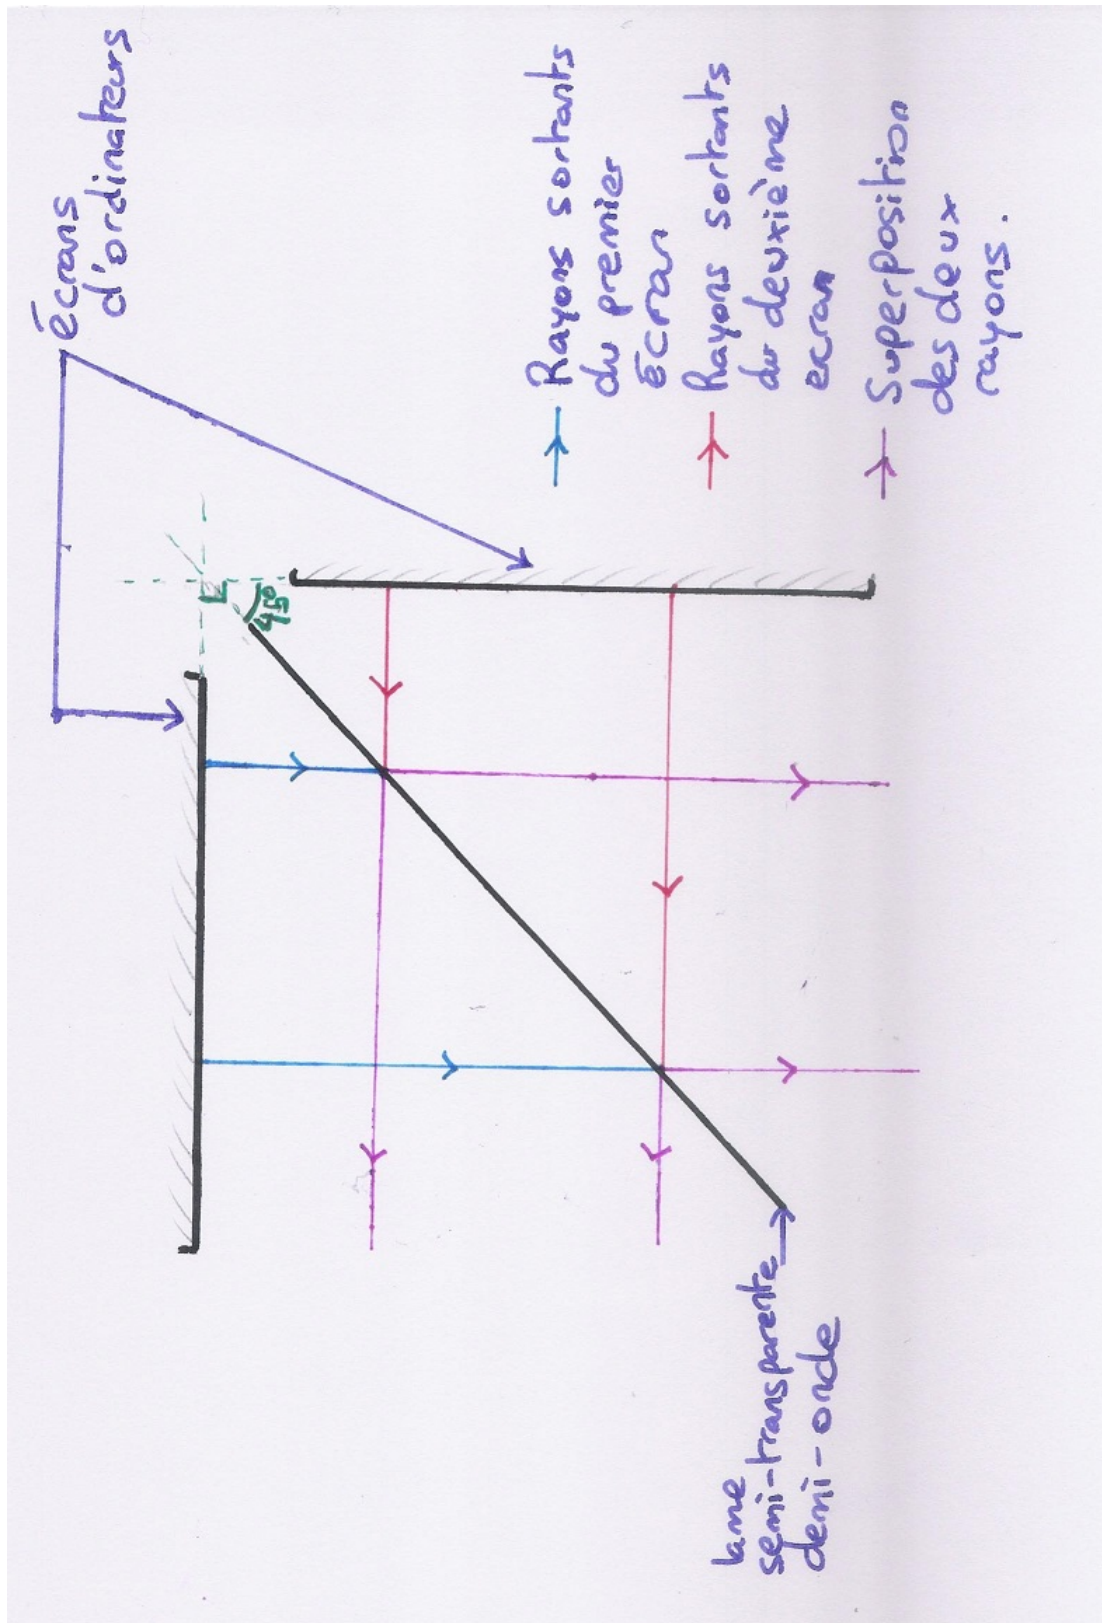 écrans
d'ordinateurs
45°
Rayons sortants
du premier
Écran
Rayons sortants
du deuxième
ecran
Superposition
des deux
rayons.
lame
semi-transparente
demi-onde